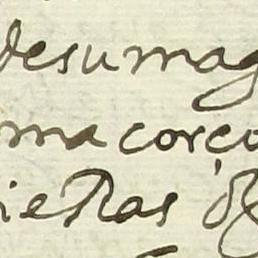 desumag
ma corço
ietras d